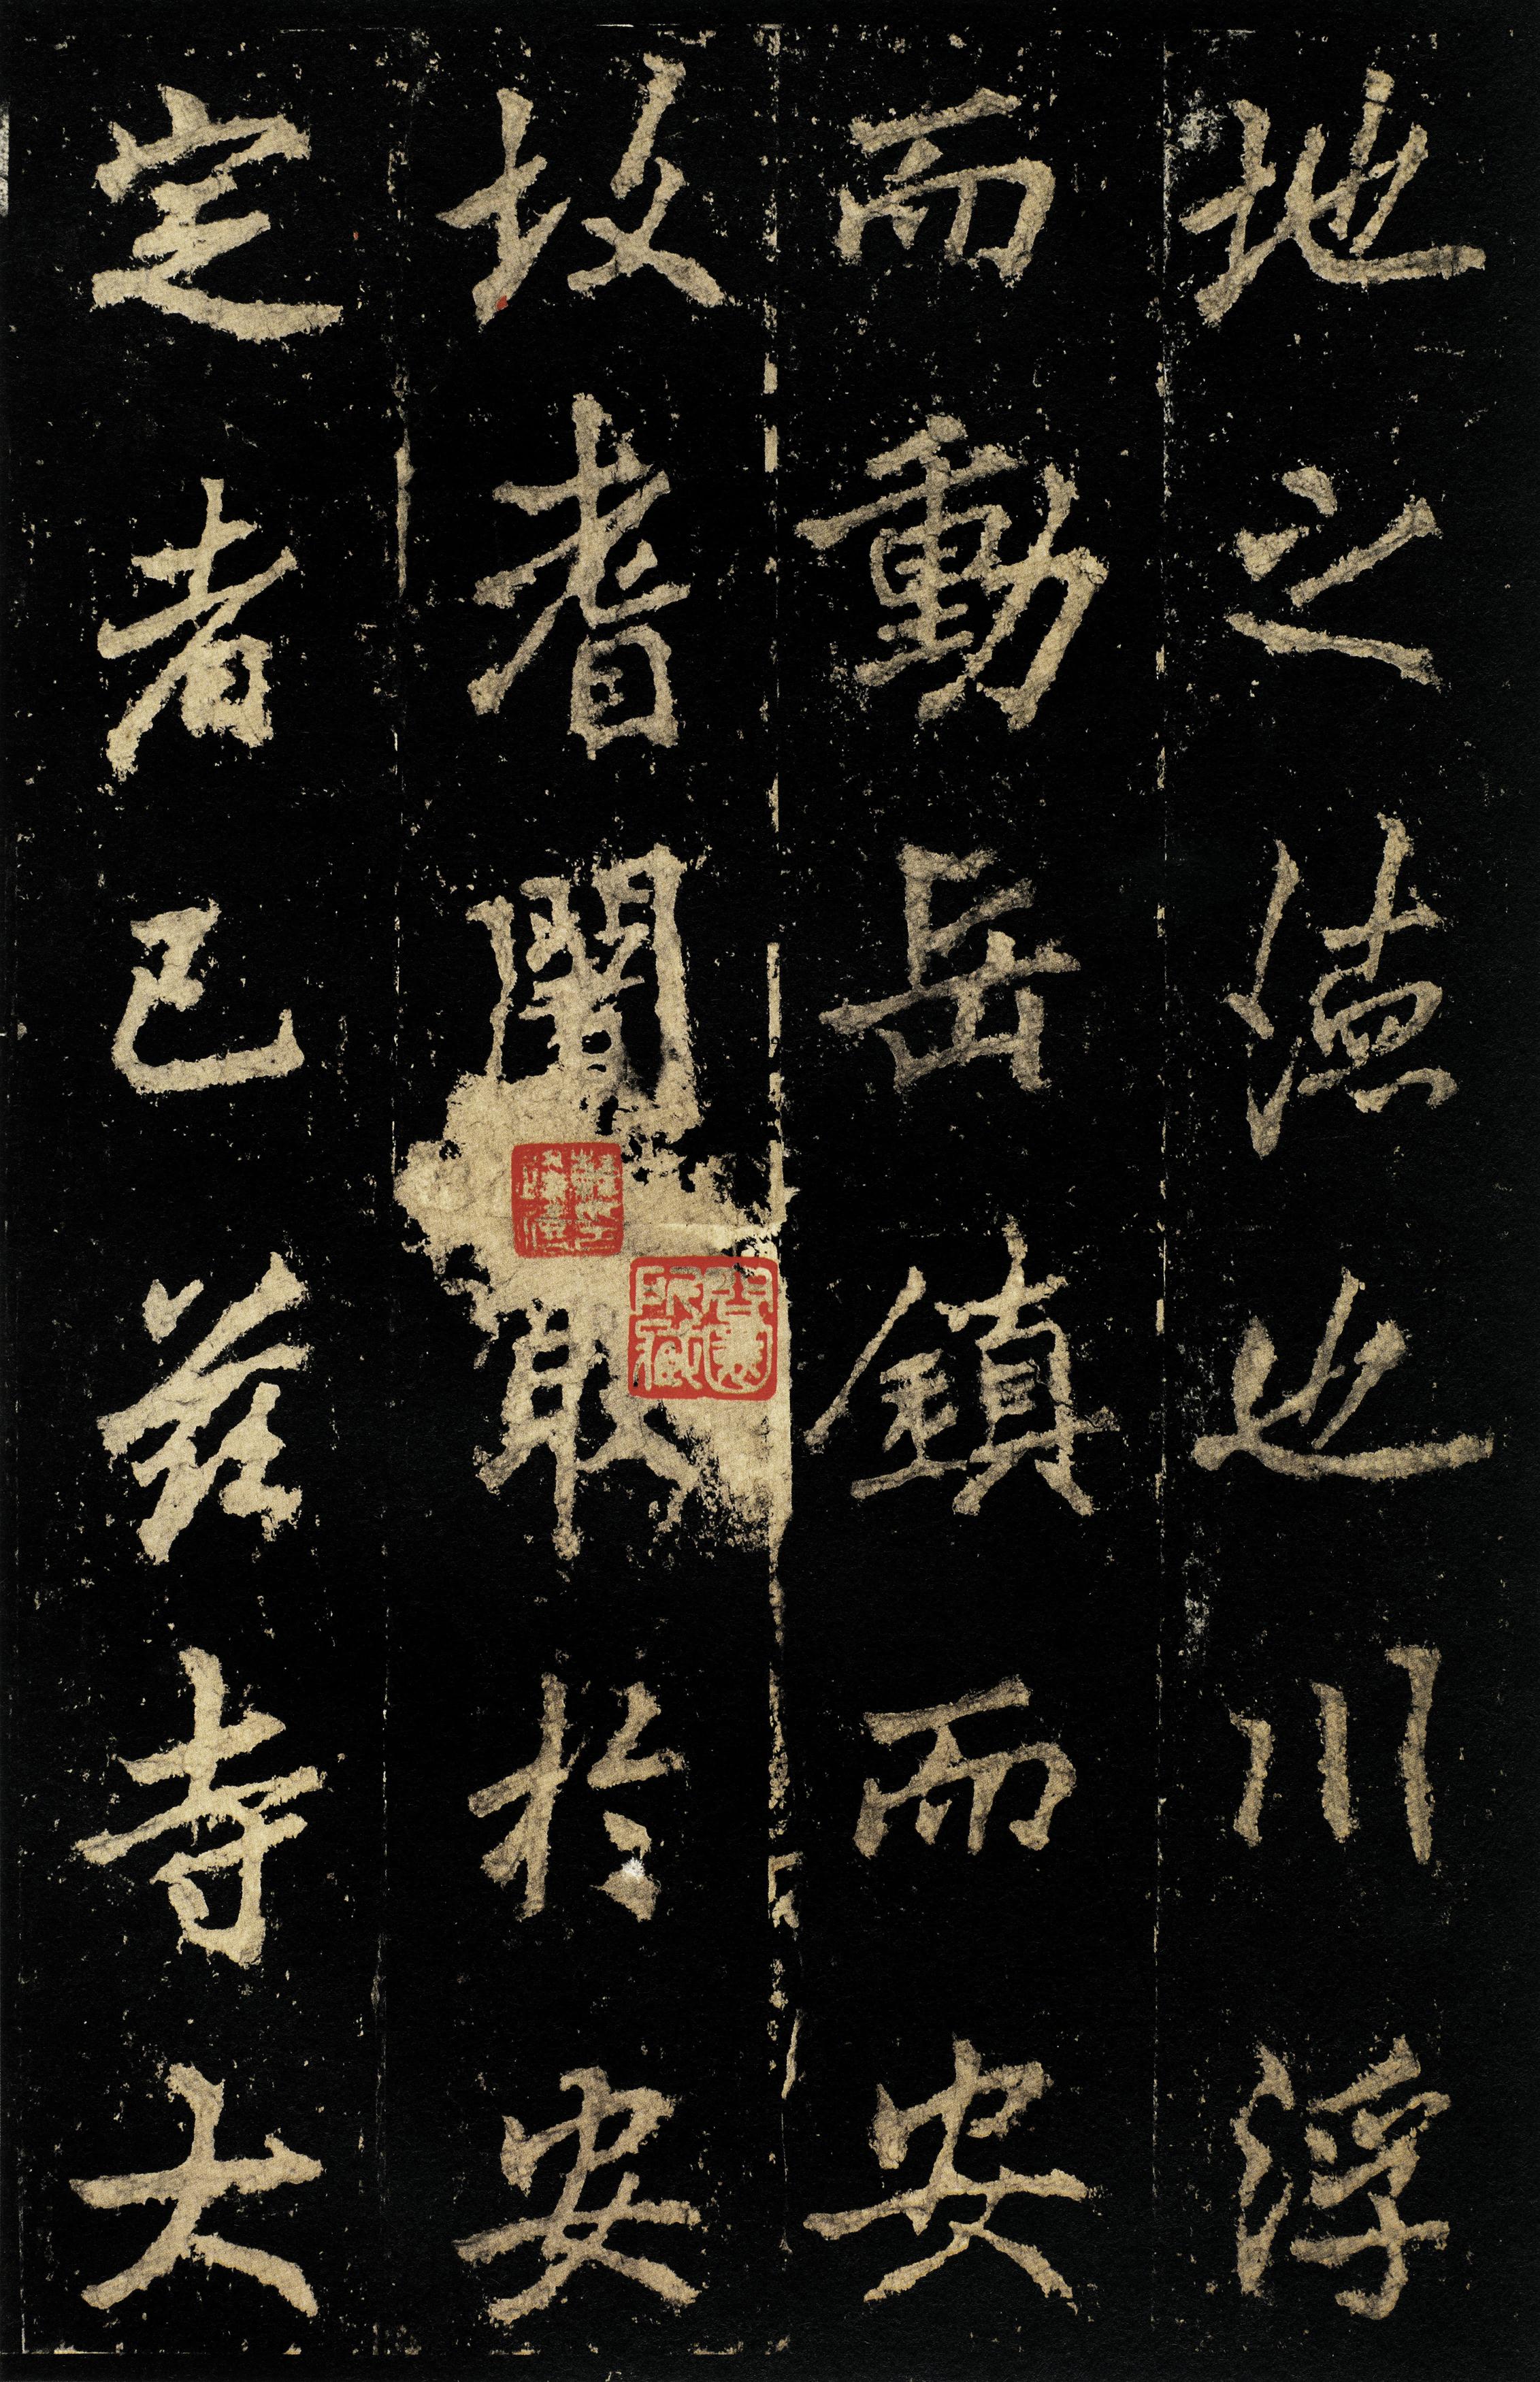 地之德也川浮
而動岳鎮而安
故耆闍取於安
定者已茲寺大